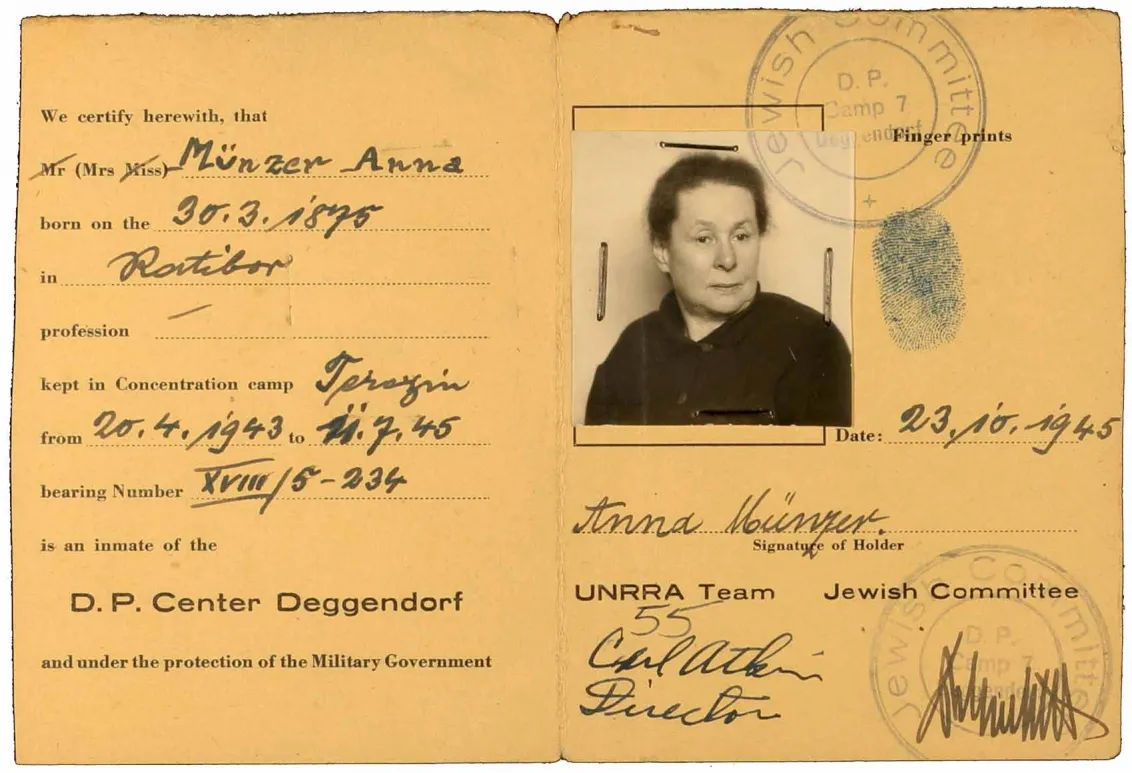 We certify herewith, that
Mr (Mrs Miss) Münzer Anna
born on the 30.3.1875
in Ratibor
profession —
kept in Concentration camp Terezin
from 20.4.1943 to 11.7.45
bearing Number XVIII/5-234
is an inmate of the
D. P. Center Deggendorf
and under the protection of the Military Government
Jewish Committee
D. P.
Camp 7
Deggendorf
Finger prints
Date: 23.10.1945
Anna Münzer.
Signature of Holder
UNRRA Team Jewish Committee
55
Carl Atkin
Director
Jewish Committee
D. P.
Camp 7